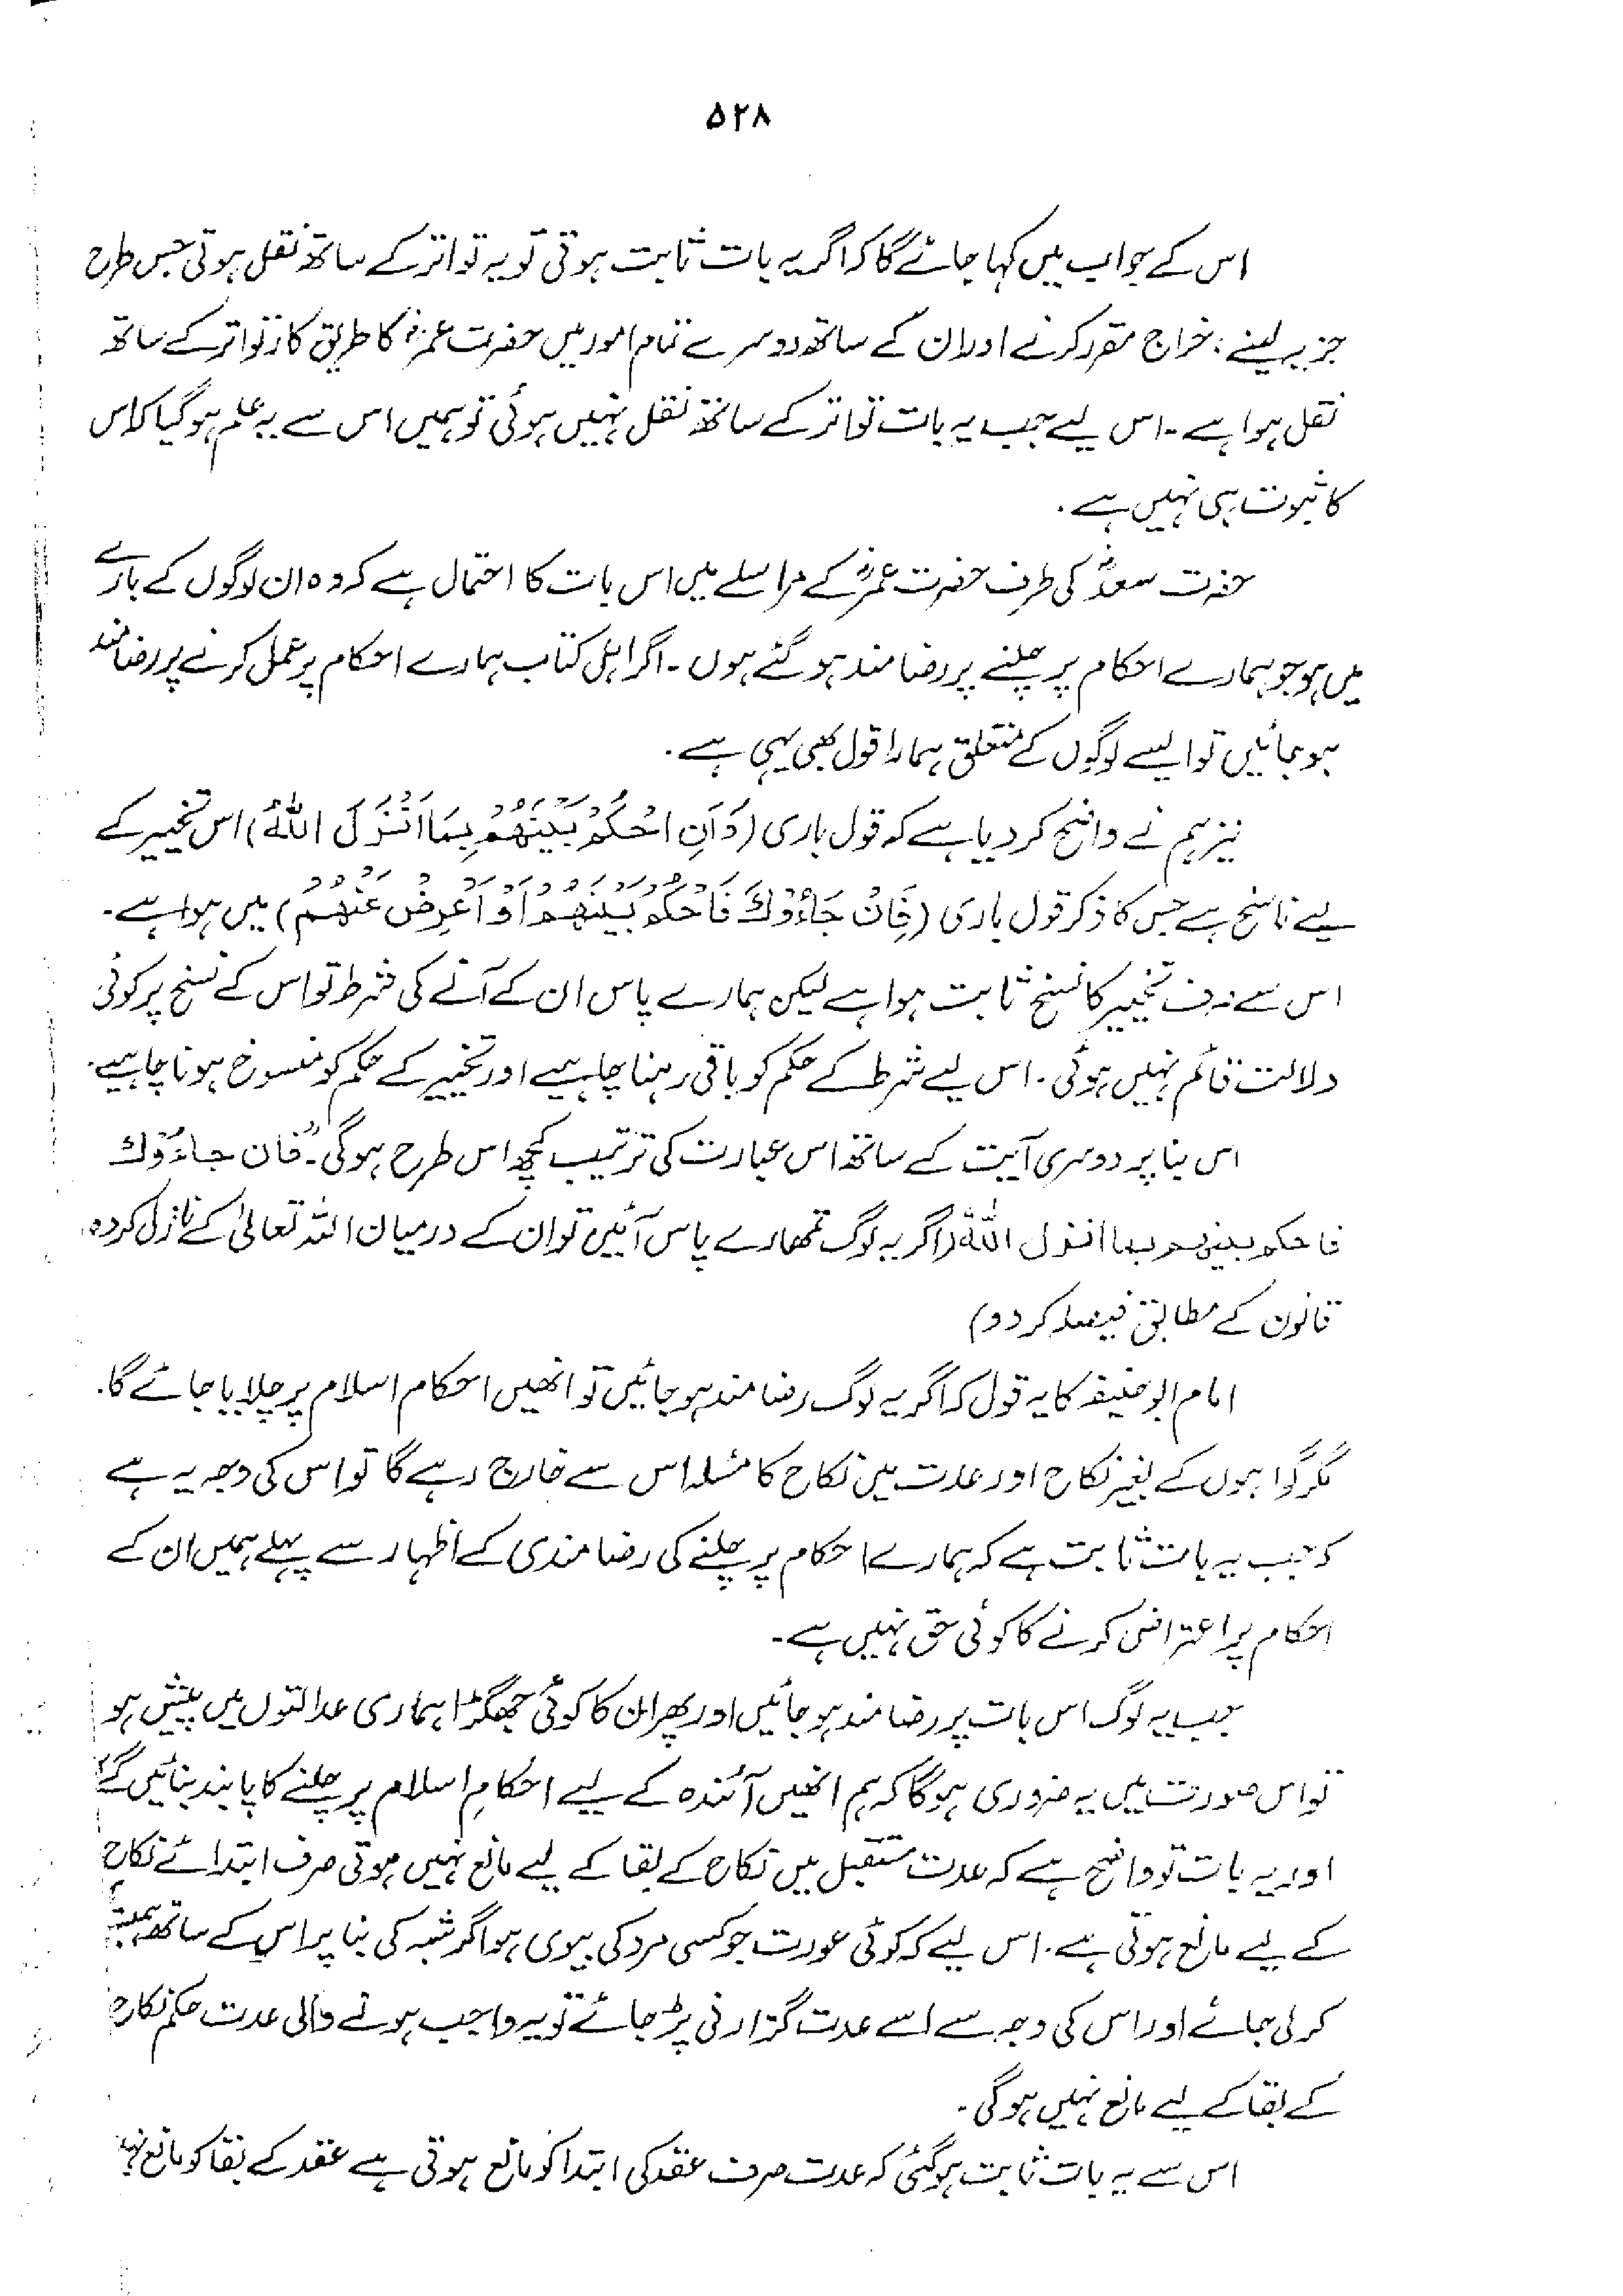 ۵۲۸
اس کے جواب میں کہا جائے گا کہ اگر یہ بات ثابت ہوتی تو یہ تواتر کے ساتھ نقل ہوتی جس طرح
جزیہ لینے، خراج مقرر کرنے اور ان کے ساتھ دوسرے تمام امور میں حضرت عمرؓ کا طریق کار تواتر کے ساتھ
نقل ہوا ہے ۔ اس لیے جب یہ بات تواتر کے ساتھ نقل نہیں ہوئی تو ہمیں اس سے یہ علم ہوگیا کہ اس
کا ثبوت ہی نہیں ہے ۔
حضرت سعدؓ کی طرف حضرت عمرؓ کے مراسلے میں اس بات کا احتمال ہے کہ وہ ان لوگوں کے بارے
میں ہو جو ہمارے احکام پر چلنے پر رضامند ہو گئے ہوں ۔ اگر اہل کتاب ہمارے احکام پر عمل کرنے پر رضامند
ہو جائیں تو ایسے لوگوں کے متعلق ہمارا قول بھی یہی ہے ۔
نیز ہم نے واضح کر دیا ہے کہ قول باری (وَاَنِ احْكُمْ بَيْنَهُمْ بِمَا اَنْزَلَ اللّٰهُ) اس تخییر کے
لیے ناسخ ہے جس کا ذکر قول باری (فَاِنْ جَاءُوْكَ فَاحْكُمْ بَيْنَهُمْ اَوْ اَعْرِضْ عَنْهُمْ) میں ہوا ہے ۔
اس سے صرف تخییر کا نسخ ثابت ہوا ہے لیکن ہمارے پاس ان کے آنے کی شرط تو اس کے نسخ پر کوئی
دلالت قائم نہیں ہوئی ۔ اس لیے شرط کے حکم کو باقی رہنا چاہیے اور تخییر کے حکم کو منسوخ ہونا چاہیے ۔
اس بنا پر دوسری آیت کے ساتھ اس عبارت کی ترتیب کچھ اس طرح ہوگی ۔ "فان جاءوك
فاحكم بينهم بما انزل اللهُ (اگر یہ لوگ تمھارے پاس آئیں تو ان کے درمیان اللہ تعالیٰ کے نازل کردہ
قانون کے مطابق فیصلہ کر دو)
امام ابو حنیفہ کا یہ قول کہ اگر یہ لوگ رضامند ہو جائیں تو انھیں احکام اسلام پر چلایا جائے گا ۔
مگر گواہوں کے بغیر نکاح اور عدت میں نکاح کا مسئلہ اس سے خارج رہے گا تو اس کی وجہ یہ ہے
کہ جب یہ بات ثابت ہے کہ ہمارے احکام پر چلنے کی رضامندی کے اظہار سے پہلے ہمیں ان کے
احکام پر اعتراض کرنے کا کوئی حق نہیں ہے ۔
جب یہ لوگ اس بات پر رضامند ہو جائیں اور پھر ان کا کوئی جھگڑا ہماری عدالتوں میں پیش ہو
تو اس صورت میں یہ ضروری ہوگا کہ ہم انھیں آئندہ کے لیے احکامِ اسلام پر چلنے کا پابند بنائیں گے
اور یہ بات تو واضح ہے کہ عدت مستقبل میں نکاح کے بقا کے لیے مانع نہیں ہوتی صرف ابتدائے نکاح
کے لیے مانع ہوتی ہے ۔ اس لیے کہ کوئی عورت جو کسی مرد کی بیوی ہو اگر شبہ کی بنا پر اس کے ساتھ
کر لی جائے اور اس کی وجہ سے اسے عدت گزارنی پڑ جائے تو یہ واجب ہونے والی عدت حکم نکاح
کے بقا کے لیے مانع نہیں ہوگی ۔
اس سے یہ بات ثابت ہوگئی کہ عدت صرف عقد کی ابتدا کو مانع ہوتی ہے عقد کے بقا کو مانع